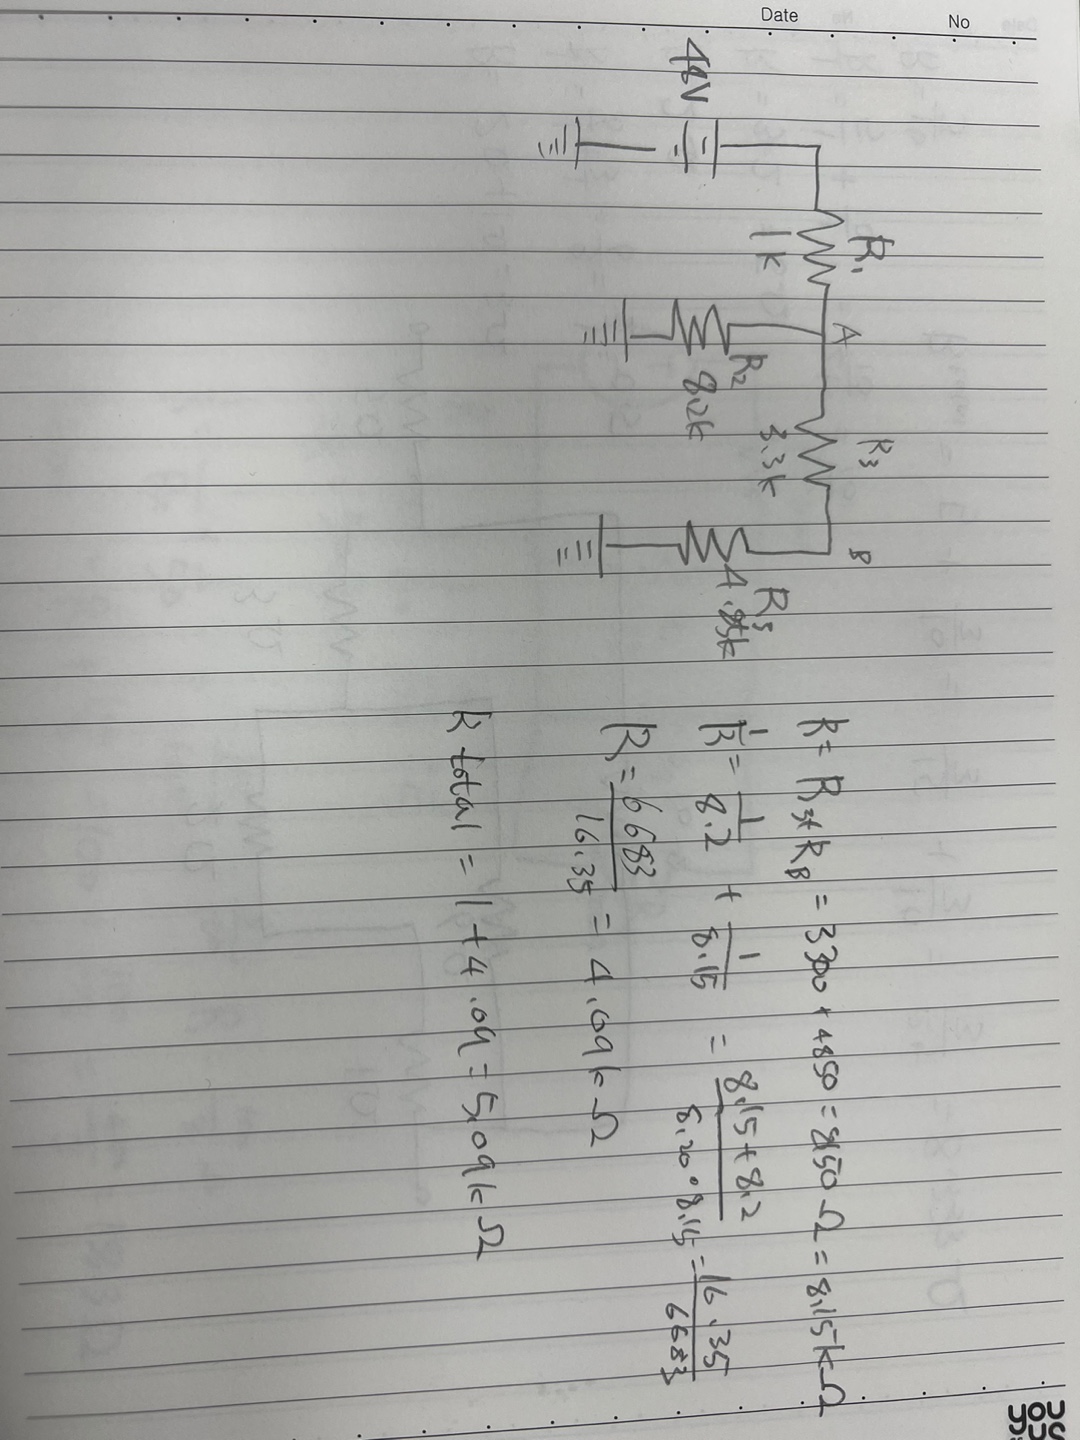 No
Date
R₁
A
R₃
B
1k
3.3k
48V
R₂
8.2k
R₅
4.85k
R = R₃ + R_B = 3300 + 4850 = 8150 Ω = 8.15kΩ
1/R = 1/8.2 + 1/8.15 = 8.15 + 8.2 / 8.20 · 8.15 = 16.35 / 6683
R = 6683 / 16.35 = 4.09kΩ
R total = 1 + 4.09 = 5.09kΩ
you
us